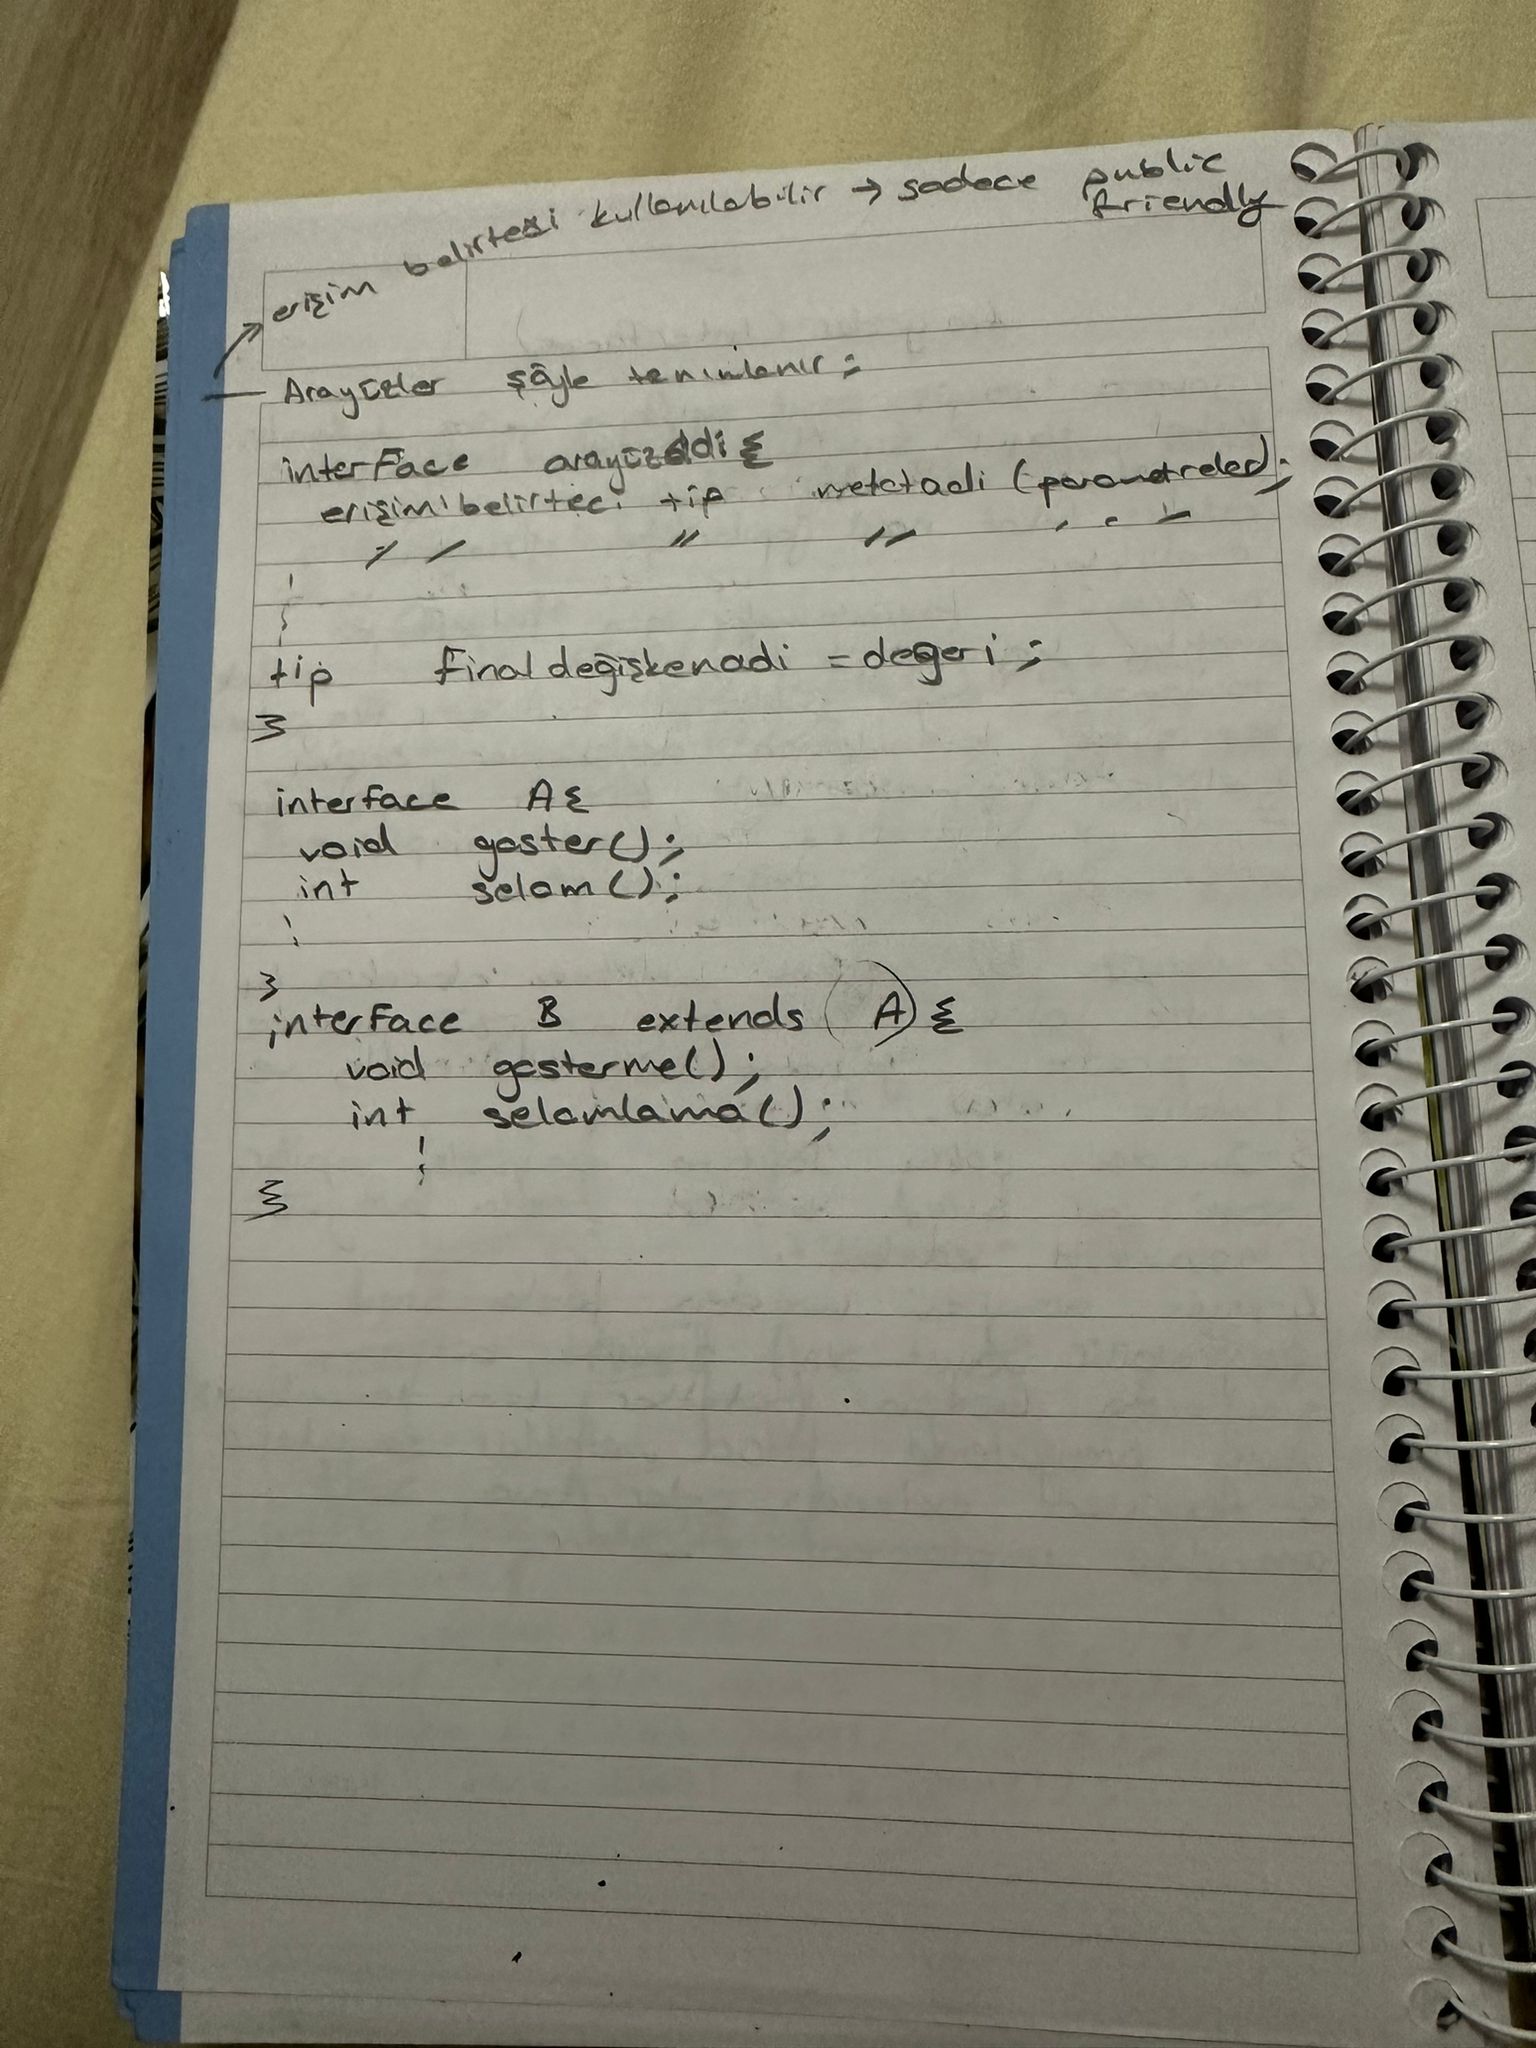 erişim belirteci kullanılabilir → sadece public
friendly
— Arayüzler şöyle tanımlanır;
interface arayüzadi {
erişim belirteci tip metctadi (parametreler);
〃 〃 〃 〃
tip final değişkenadi = değeri;
}
interface A {
void goster();
int selam();
}
interface B extends A {
void gosterme();
int selamlama();
}